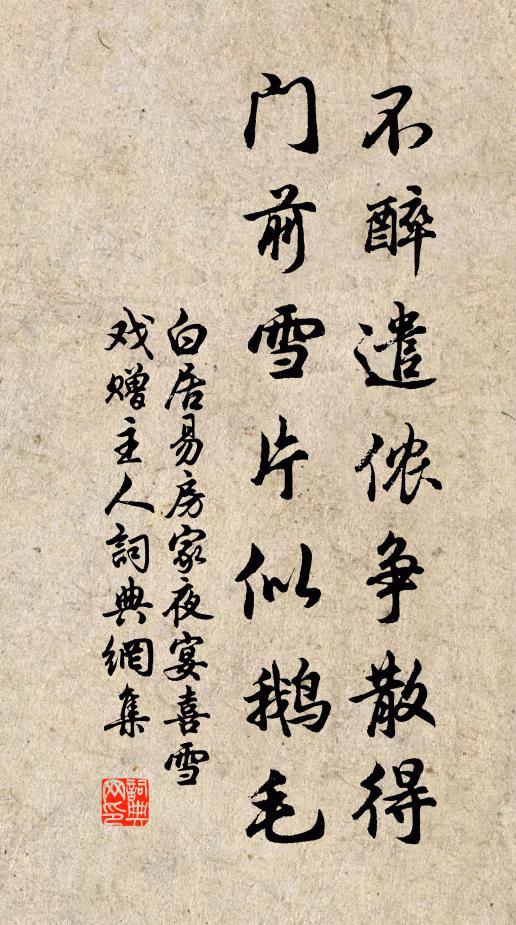 不醉遣侬争散得
门前雪片似鹅毛
白居易房家夜宴喜雪
戏赠主人词典網集
詞典
网印